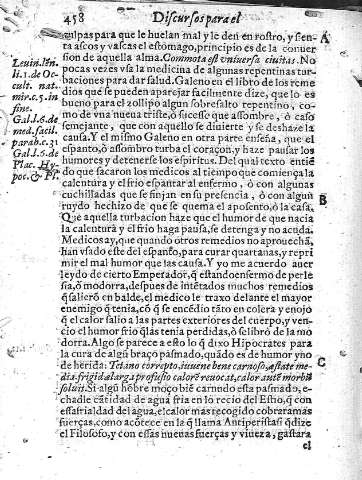 458 Discursos para el
culpas para que le huelan mal y le den en rostro, y sien-
ta ascos y vascas el estomago, principio es de la conuer
sion de aquella alma. Commota est vniuersa ciuitas. No
pocas vezes vsa la medicina de algunas repentinas tur-
baciones para dar salud. Galeno en el libro de los reme
dios què se pueden aparejar facilmente dize, que lo es
bueno para el zollipo algun sobresalto repentino, co-
mo de vna nueua triste, ò sucesse que assombre, ò caso
semejante, que con aquello se diuierte y se deshaze la
causa. Y el mismo Galeno en otra parte enseña, que el
espanto, ò assombro turba el coraçon, y haze pausar los
humores y detenerse los espiritus. Del qual texto entiē
do que sacaron los medicos al tiempo que comiença la
calentura y el frio espantar al enfermo, ò con algunas
cuchilladas que se finjan en su presencia, ò con algun
ruydo hechizo de que se quema el aposento, ò la casa.
Que aquella turbacion haze que el humor de que nacia
la calentura y el frio haga pausa, se detenga y no acuda.
Medicos ay, que quando otros remedios no aprouechā,
han vsado este del espanto, para curar quartanas, y repri
mir el mal humor que las causa. Y yo me acuerdo auer
leydo de cierto Emperador, q estando enfermo de perle
sia, ò modorra, despues de intētados muchos remedios
q salierō en balde, el medico le traxo delante el mayor
enemigo q tenia, cō q se encēdio tāto en colera y enojo
q el calor salio a las partes exteriores del cuerpo, y ven-
cio el humor frio q las tenia perdidas, ò se libro de la mo
dorra. Algo se parece a esto lo q dixo Hipocrates para
la cura de algū braço pasmado, quādo es de humor y no
de herida: Tetano correpto, iuuene bene carnoso, æstate me
dia, frigida larga profusio calorē reuocat, calor autē morbū
soluit. Si algū hōbre moço biē carnudo esta pasmado, e-
chadle cātidad de agua fria en lo recio del Estio, q con
essa frialdad del agua, el calor mas recogido cobrara mas
fuerças, como acōtece en la q llama Antiperistasi q dize
el Filosofo, y con essas nueuas fuerças y viueza, gastara
el
A
B
C
Leuin. lēn.
li. 1. de Oc
cult. nat-
mir. c. 5. in
fine.
Gal. l. 6. de
med. facil.
parab. c. 31
Gal. l. 5. de
Plac. Hy-
poc. & Pl.